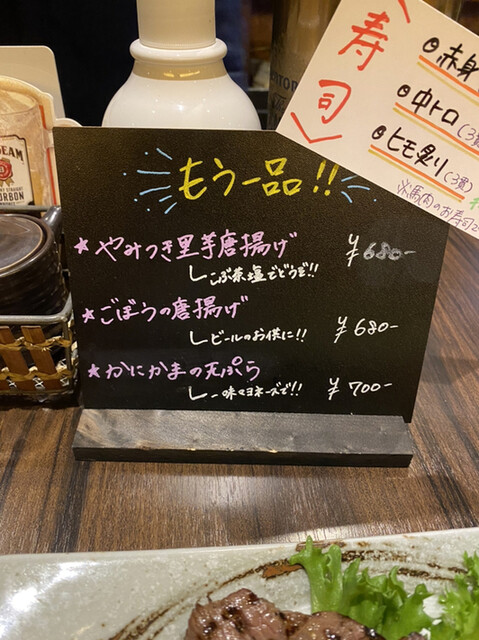 もう一品!!
★やみつき里芋唐揚げ ¥680-
こぶ茶塩でどうぞ!!
★ごぼうの唐揚げ
ビールのお供に!! ¥680-
★かにかまの天ぷら
一味マヨネーズで!! ¥700-
〈寿司〉
❷赤身
❷中トロ(3貫)
❷ヒモ炙り(3貫)
※馬肉のお寿司
BEAM
BOURBON